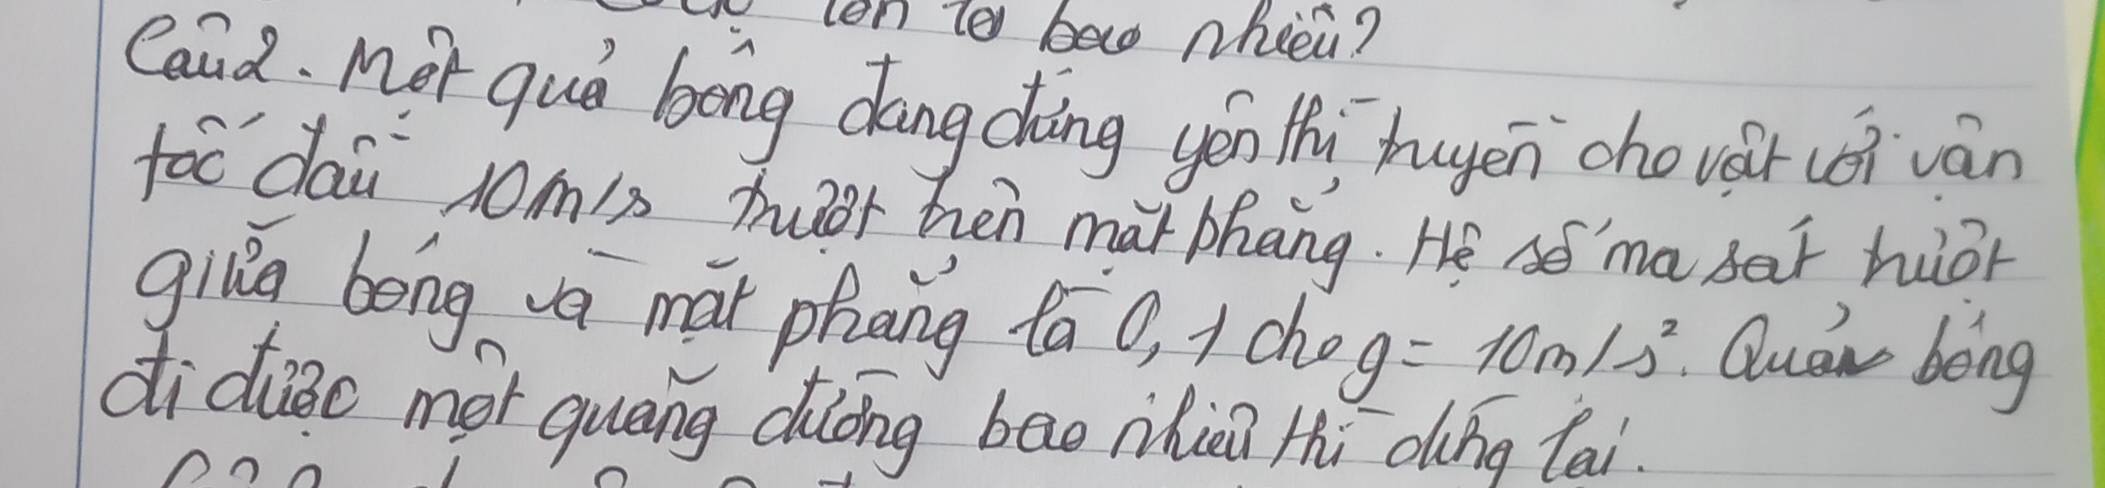 lớn là bao nhiêu?
Câu 2. Một quả bóng đang đứng yên thì truyền cho vật với vận
tốc đầu 10m/s trượt trên mặt phẳng. Hệ số ma sát trượt
giữa bóng và mặt phẳng là 0,1 cho g = 10m/s². Quả bóng
đi được một quãng đường bao nhiêu thì dừng lại.